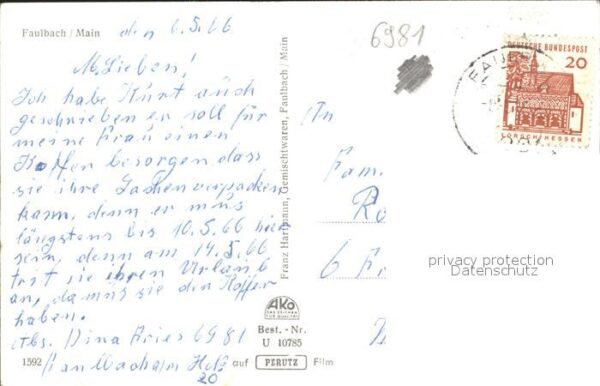 Faulbach / Main
den 6.5.66
M. Lieben!
Ich habe Kurt auch
geschrieben er soll für
meine Frau einen
Koffer besorgen dass
sie ihre Sachen verpacken
kann, denn er muss
längstens bis 10.5.66 hier
sein, denn am 14.5.66
trit sie ihren Urlaub
an, da muss sie den Koffer
haben.
Abs. Dina Aries 6981
Faulbach a/m
20
1592
Franz Hartmann, Gemischtwaren, Faulbach / Main
AKO
DAS ZEICHEN
FÜR QUALITÄT
Best.-Nr.
U 10785
auf PERUTZ Film
6981
An
Fam.
6 Fr
DEUTSCHE BUNDESPOST
20
LORSCH/HESSEN
privacy protection
Datenschutz